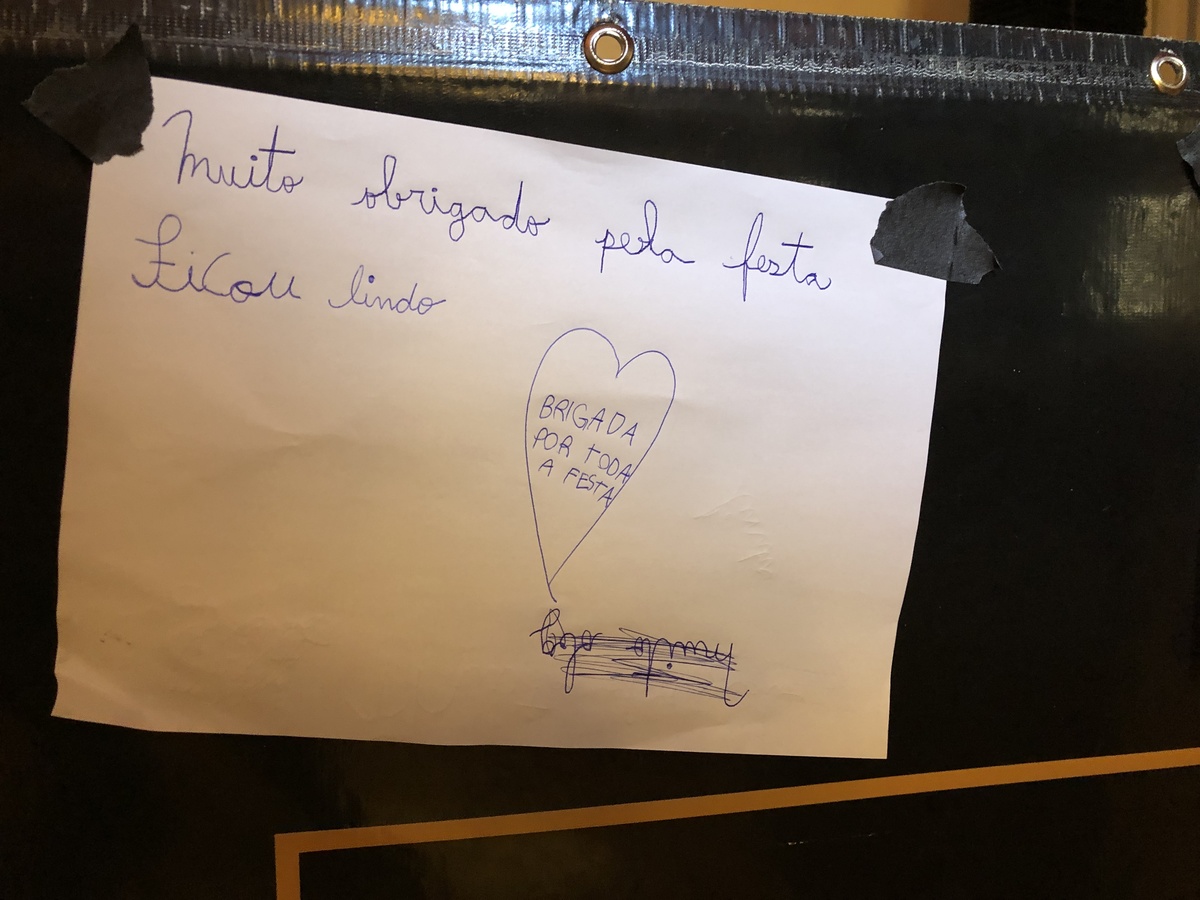 Muito obrigado pela festa
Ficou lindo
BRIGADA
POR TODA
A FESTA